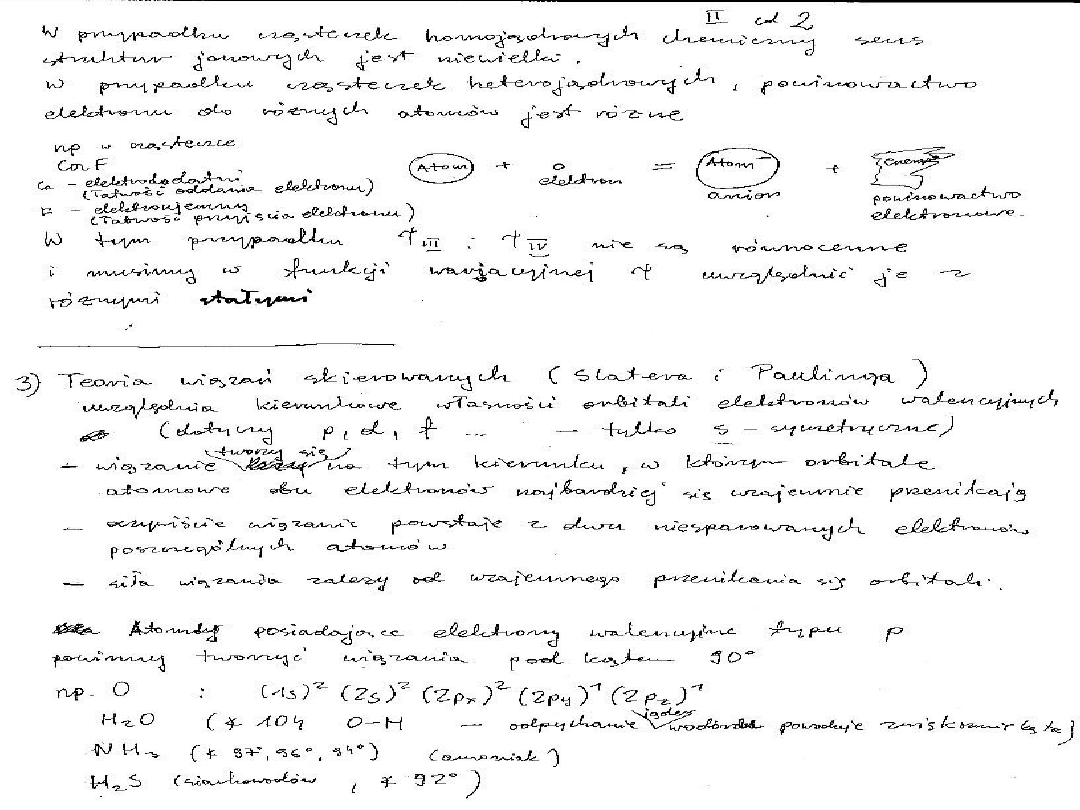 II cd 2
W przypadku cząsteczek homojądrowych chemiczny sens
struktur jonowych jest niewielki.
W przypadku cząsteczek heterojądrowych, powinowactwo
elektronu do różnych atomów jest różne
np w cząsteczce
Ca F
Ca – elektrododatni
(łatwość oddania elektronu)
F – elektroujemny
(łatwość przyjścia elektronu)
Atom + o = Atom⁻ + energia
elektron anion powinowactwo
elektronowe.
W tym przypadku Ψ III i Ψ IV nie są równocenne
i musimy w funkcji wariacyjnej Ψ uwzględnić je z
różnymi stałymi
3) Teoria wiązań skierowanych (Slatera i Paulinga)
uwzględnia kierunkowe własności orbitali elektronów walencyjnych
(dotyczy p, d, f ... – tylko s – symetryczne)
– wiązanie tworzy się na tym kierunku, w którym orbitale
atomowe obu elektronów najbardziej się wzajemnie przenikają
– oczywiście wiązanie powstaje z dwu niesparowanych elektronów
poszczególnych atomów
– siła wiązania zależy od wzajemnego przenikania się orbitali.
Atomy posiadające elektrony walencyjne typu p
powinny tworzyć wiązania pod kątem 90°
np. O : (1s)² (2s)² (2px)² (2py)¹ (2pz)¹
H2O (∢ 104 O–H – odpychanie jąder wodoru powoduje zwiększenie kąta)
NH3 (∢ 97°, 96°, 94°) (amoniak)
H2S (siarkowodór, ∢ 92°)